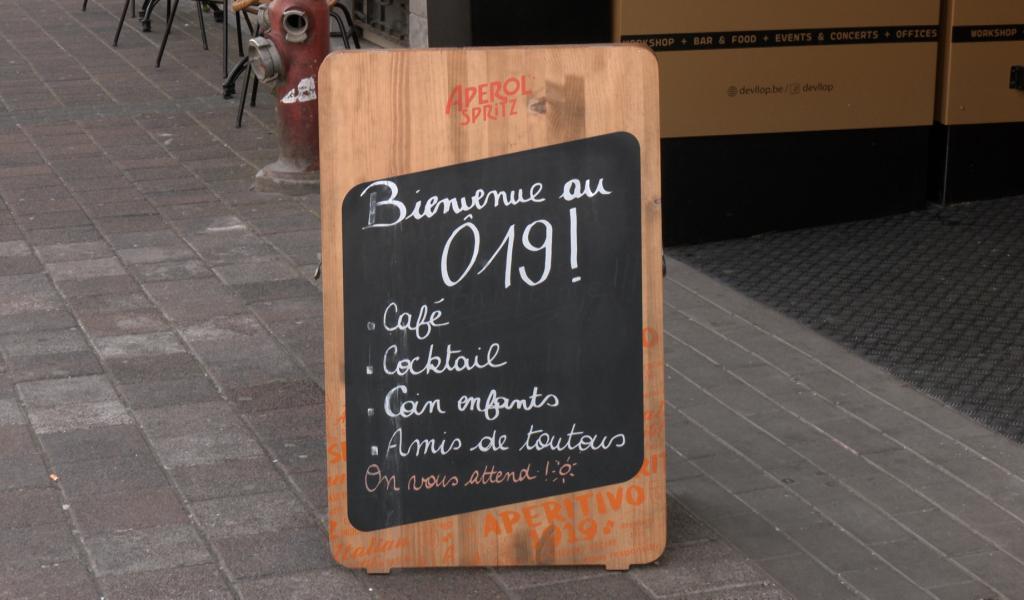 WORKSHOP + BAR & FOOD + EVENTS & CONCERTS + OFFICES
WORKSHOP +
devllop.be / devllop
APEROL
SPRITZ
Bienvenue au
Ô19!
. Café
. Cocktail
. Coin enfants
. Amis de toutous
On vous attend !
APERITIVO
1919
Italian